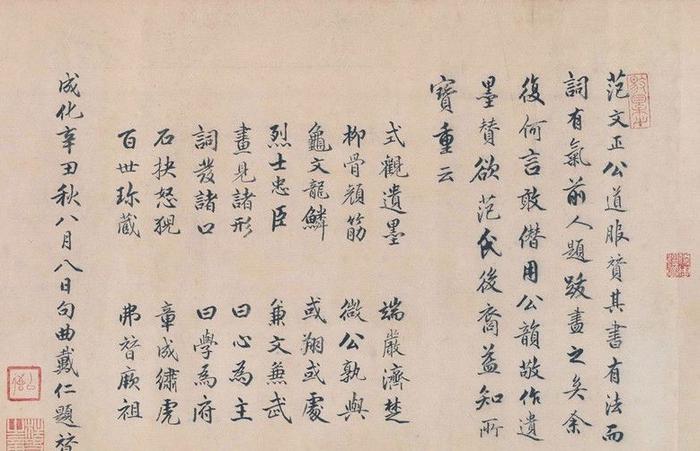 范文正公道服賛其書有法而
詞有氣前人題跋盡之矣余
復何言敢僣用公韻敬作遺
墨賛欲范氏後裔益知所
寶重云
式觀遺墨 端嚴濟楚
柳骨顔筋 微公孰與
龜文龍鱗 或翔或處
烈士忠臣 兼文兼武
畫見諸形 曰心為主
詞發諸口 曰學為府
石抉怒猊 章成繡虎
百世珍藏 弗替厥祖
成化辛丑秋八月八日句曲戴仁題